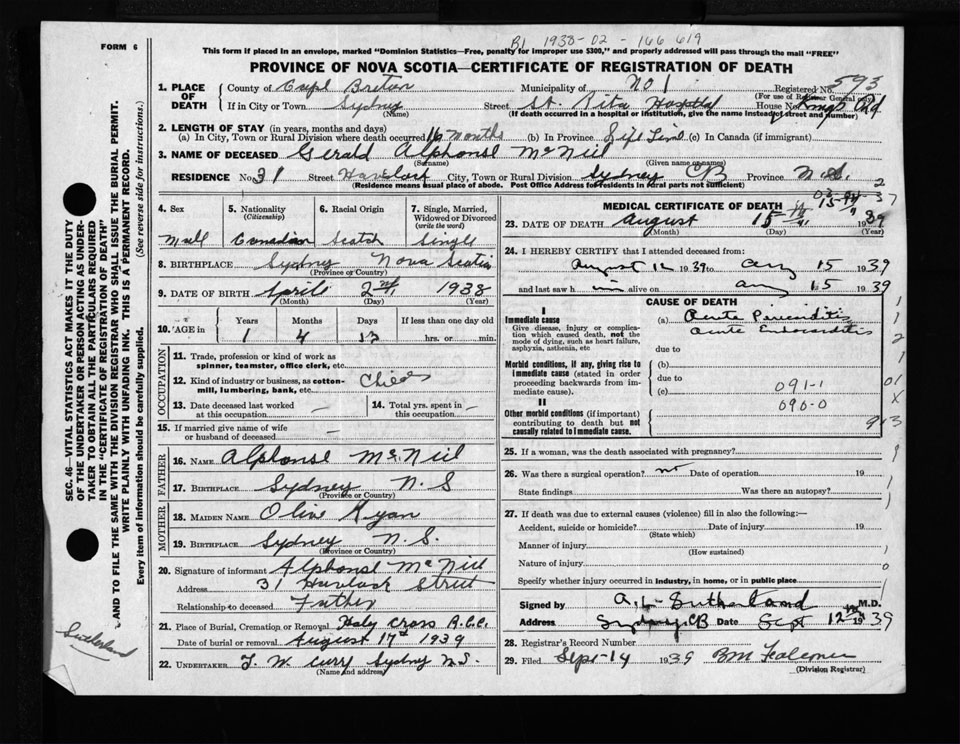 FORM 6
B1 1938-02-166 619
This form if placed in an envelope, marked "Dominion Statistics—Free, penalty for improper use $300," and properly addressed will pass through the mail "FREE"
PROVINCE OF NOVA SCOTIA—CERTIFICATE OF REGISTRATION OF DEATH
1. PLACE OF DEATH County of Cape Breton Municipality of No 1 Registered No. 593
(For use of Registrar General only)
If in City or Town Sydney Street St. Rita Hospital House No.
(Name) (If death occurred in a hospital or institution, give the name instead of street and number)
2. LENGTH OF STAY (in years, months and days)
(a) In City, Town or Rural Division where death occurred 16 months (b) In Province Life Time (c) In Canada (if immigrant)
3. NAME OF DECEASED Gerald Alphonse McNeil
(Surname) (Given name or names)
RESIDENCE No. 31 Street Havelock City, Town or Rural Division Sydney CB Province N.S.
(Residence means usual place of abode. Post Office Address for residents in rural parts not sufficient)
4. Sex 5. Nationality (Citizenship) 6. Racial Origin 7. Single, Married, Widowed or Divorced (write the word)
Mall Canadian Scotch Single
8. BIRTHPLACE Sydney Nova Scotia
(Province or Country)
9. DATE OF BIRTH April 2nd 1938
(Month) (Day) (Year)
10. AGE in Years Months Days If less than one day old
1 4 13 hrs. or min.
OCCUPATION
11. Trade, profession or kind of work as spinner, teamster, office clerk, etc.
12. Kind of industry or business, as cotton-mill, lumbering, bank, etc. Child
13. Date deceased last worked at this occupation — 14. Total yrs. spent in this occupation —
15. If married give name of wife or husband of deceased —
FATHER
16. NAME Alphonse McNeil
17. BIRTHPLACE Sydney N.S
(Province or Country)
MOTHER
18. MAIDEN NAME Olive Ryan
19. BIRTHPLACE Sydney N.S.
(Province or Country)
20. Signature of informant Alphonse McNeil
Address 31 Havelock Street
Relationship to deceased Father
21. Place of Burial, Cremation or Removal Holy Cross R.C.C.
Date of burial or removal August 17th 1939
22. UNDERTAKER T. W. Curry Sydney N.S.
(Name and address)
MEDICAL CERTIFICATE OF DEATH
23. DATE OF DEATH August 15 1939
(Month) (Day) (Year)
24. I HEREBY CERTIFY that I attended deceased from:
August 12 1939 to Aug 15 1939
and last saw him alive on Aug 15 1939
CAUSE OF DEATH
I
Immediate cause (a) Acute Pericarditis
Acute Endocarditis
Give disease, injury or complication which caused death, not the mode of dying, such as heart failure, asphyxia, asthenia, etc
due to
Morbid conditions, if any, giving rise to immediate cause (stated in order proceeding backwards from immediate cause).
(b)
due to
(c) 091-1
II 090-0
Other morbid conditions (if important) contributing to death but not causally related to immediate cause.
25. If a woman, was the death associated with pregnancy?
26. Was there a surgical operation? no Date of operation 19
State findings Was there an autopsy?
27. If death was due to external causes (violence) fill in also the following:—
Accident, suicide or homicide? Date of injury 19
(State which)
Manner of injury
(How sustained)
Nature of injury
Specify whether injury occurred in industry, in home, or in public place
Signed by A. L. Sutherland M.D.
Address Sydney CB Date Sept 12th 1939
28. Registrar's Record Number
29. Filed Sept 14 1939 BM Falconer
(Division Registrar)
SEC. 46—VITAL STATISTICS ACT MAKES IT THE DUTY OF THE UNDERTAKER OR PERSON ACTING AS UNDERTAKER TO OBTAIN ALL THE PARTICULARS REQUIRED IN THE "CERTIFICATE OF REGISTRATION OF DEATH"
AND TO FILE THE SAME WITH THE DIVISION REGISTRAR WHO SHALL ISSUE THE BURIAL PERMIT.
WRITE PLAINLY WITH UNFADING INK. THIS IS A PERMANENT RECORD.
Every item of information should be carefully supplied. (See reverse side for instructions.)
Sutherland